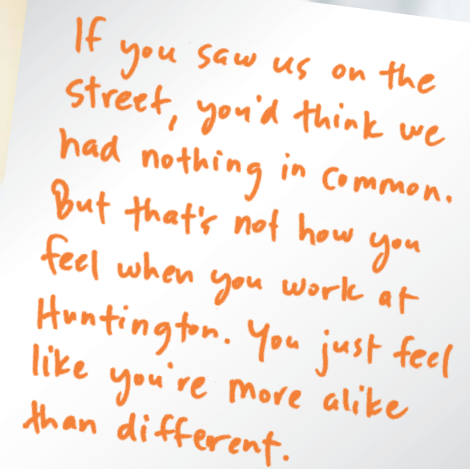 If you saw us on the
street, you'd think we
had nothing in common.
But that's not how you
feel when you work at
Huntington. You just feel
like you're more alike
than different.